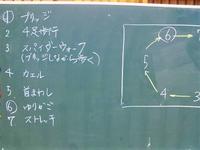 ① ブリッジ
2 4足歩行
3 スパイダーウォーク
(ブリッジしながら歩く)
4 カエル
5 首まわし
⑥ ゆりかご
7 ストレッチ
⑥ 7
5
4 3